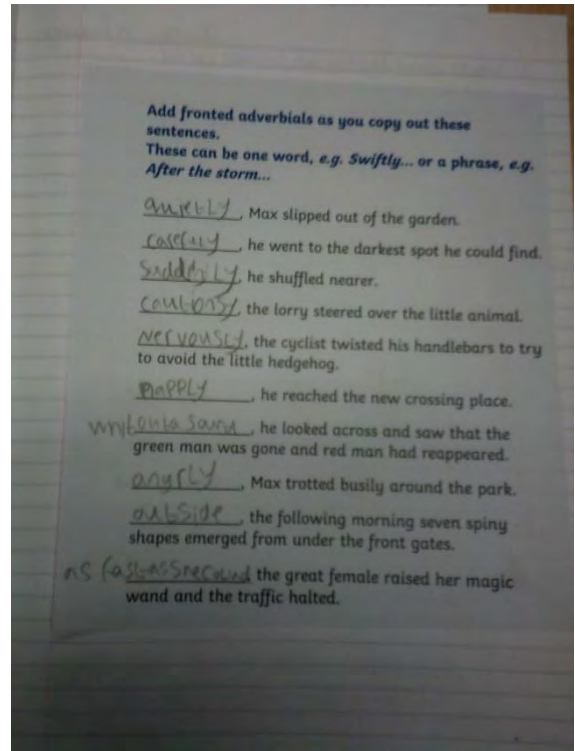 Add fronted adverbials as you copy out these
sentences.
These can be one word, e.g. Swiftly... or a phrase, e.g.
After the storm...
quietly, Max slipped out of the garden.
casefuly, he went to the darkest spot he could find.
Suddenily, he shuffled nearer.
, the lorry steered over the little animal.
Nervously, the cyclist twisted his handlebars to try
to avoid the little hedgehog.
happly, he reached the new crossing place.
a sound, he looked across and saw that the
green man was gone and red man had reappeared.
angrly, Max trotted busily around the park.
outside, the following morning seven spiny
shapes emerged from under the front gates.
as fast as the great female raised her magic
wand and the traffic halted.